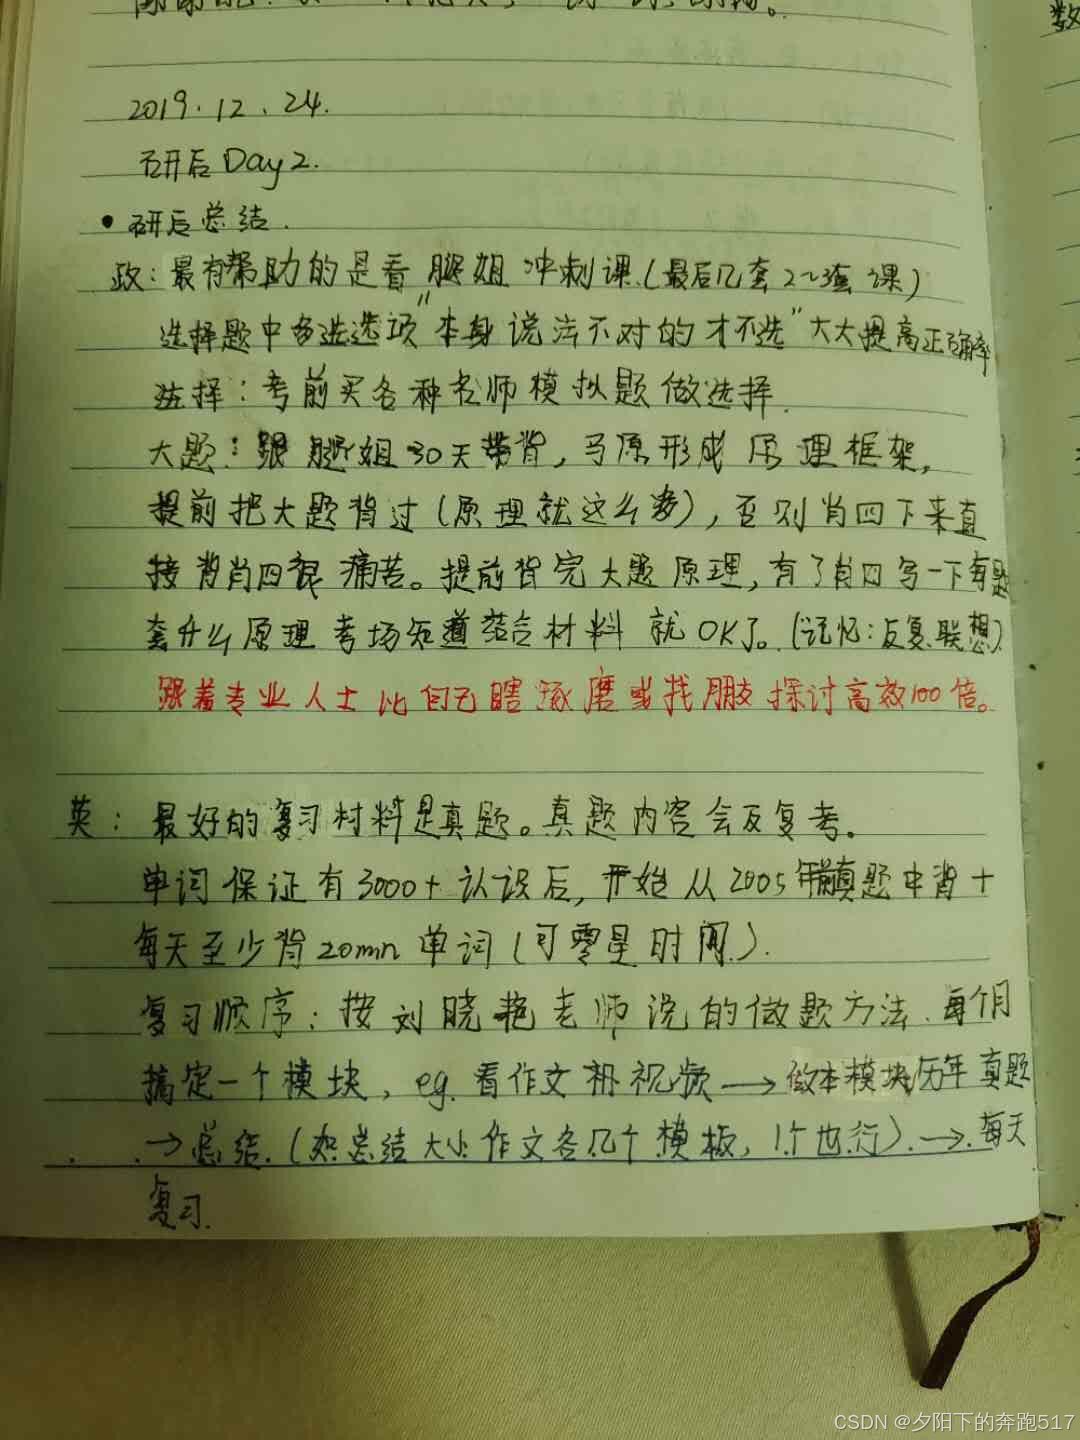 2019.12.24.
研后Day2.
• 研后总结.
政：最有帮助的是看腿姐冲刺课.(最后几套2~3套课)
选择题中多选选项"本身说法不对的才不选"大大提高正确率
选择：考前买各种名师模拟题做选择.
大题：跟腿姐30天带背，马原形成原理框架，
提前把大题背过(原理就这么多)，否则肖四下来直
接背肖四很痛苦。提前背完大题原理，有了肖四写一下每题
套什么原理考场知道结合材料就OK了。(记忆：反复.联想)
跟着专业人士比自己瞎琢磨或找朋友探讨高效100倍。
英：最好的复习材料是真题。真题内容会反复考。
单词保证有3000+认识后，开始从2005年真题中背+
每天至少背20min单词(可零星时间.).
复习顺序：按刘晓艳老师说的做题方法.每个月
搞定一个模块，eg.看作文册视频→做本模块历年真题
→总结.(如总结大小作文各几个模板，1个也行).→每天
复习.
数
CSDN @夕阳下的奔跑517